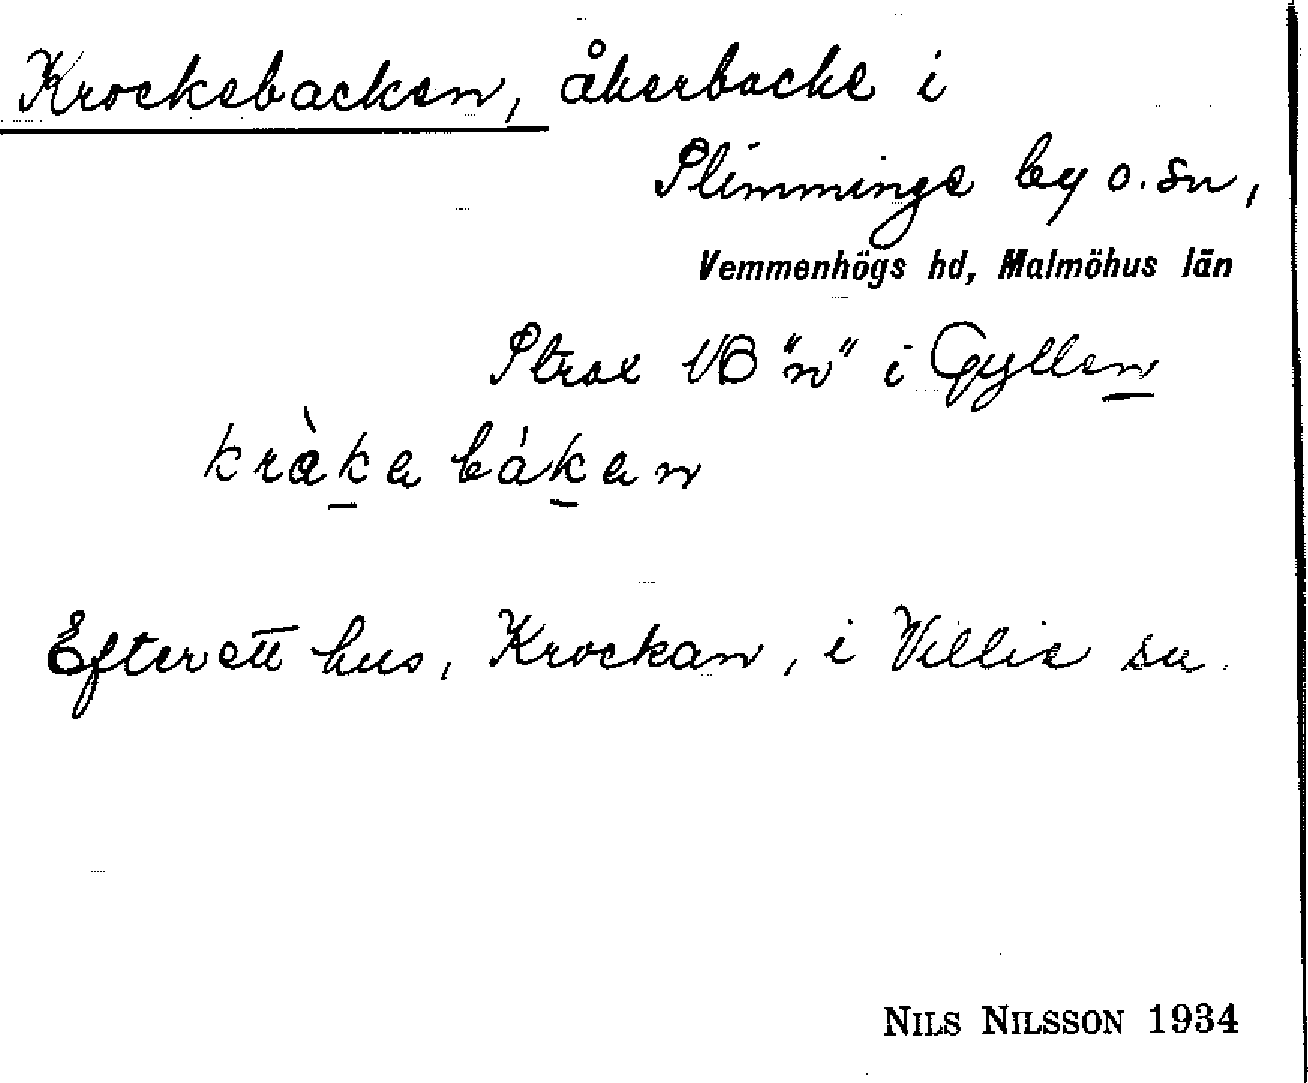 Krockebacken, åkerbacke i
Slimminge by o. sn,
Vemmenhögs hd, Malmöhus län
Strax VB "n" i Gyllen
kràka bákan
Efter ett hus, Krockan, i Villie sn.
NILS NILSSON 1934